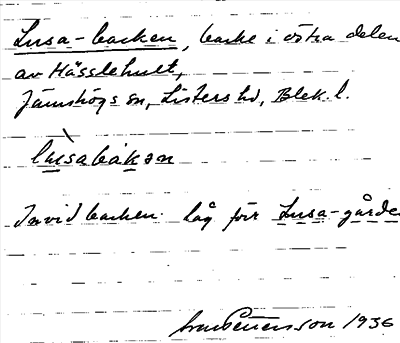 Lusa-backen, backe i östra delen
av Hässlehult,
Jämshögs sn, Listers hd, Blek. l.
lùsabakən
Invid backen låg förr Lusa-gården
Pettersson 1936